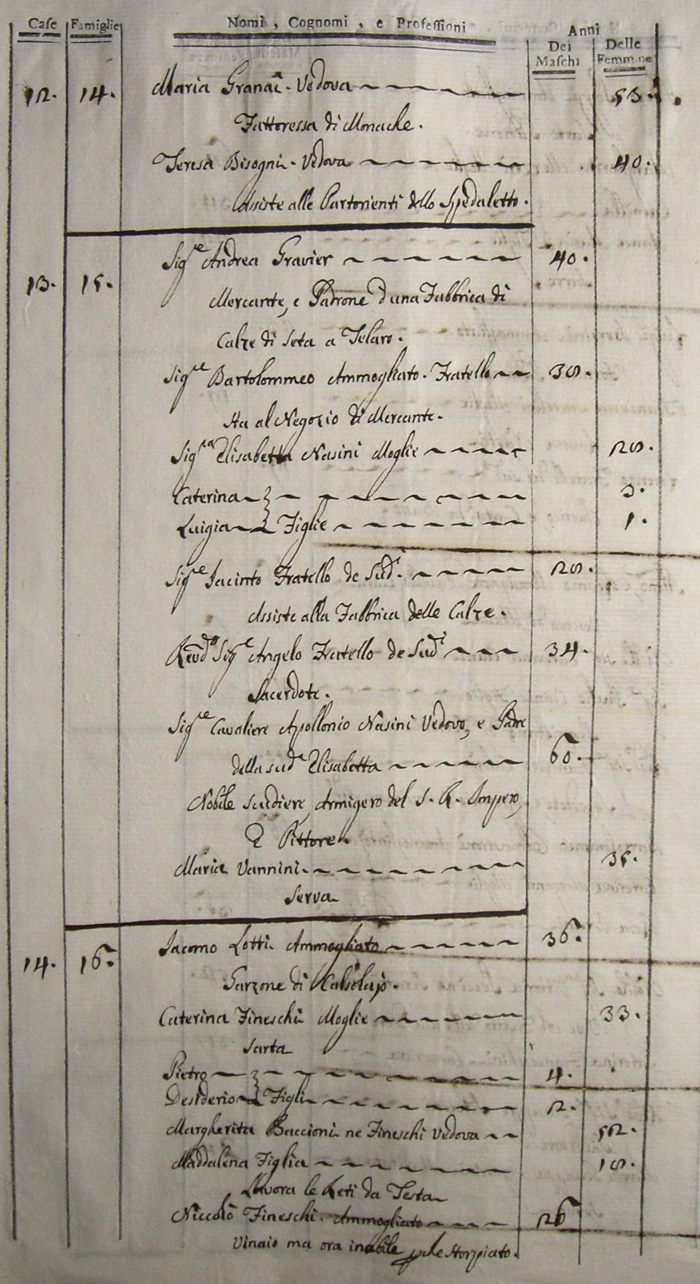 Case Famiglie Nomi, Cognomi, e Professioni Anni
Dei Maschi Delle Femmine
12. 14. Maria Granai. Vedova 53.
Fattoressa di Monache.
Teresa Bisogni. Vedova 40.
Assiste alle Partorienti dello Spedaletto.
13. 15. Sig.re Andrea Gravier 40.
Mercante, e Padrone d'una Fabbrica di
Calze di Seta a Telaro.
Sig.re Bartolommeo Ammogliato. Fratello 38.
Sta al Negozio di Mercante.
Sig.ra Elisabetta Nasini Moglie 28.
Caterina 3.
Luigia Figlie 1.
Sig.re Jacinto Fratello de Sud.i 28.
Assiste alla Fabbrica delle Calze.
Revd.o Sig.re Angelo Fratello de Sud.i 34.
Sacerdote.
Sig.re Cavaliere Apollonio Nasini Vedovo, e Padre
della sud.a Elisabetta 60.
Nobile Scudiere, Armigero del S. R. Impero,
E Pittore
Maria Vannini. 35.
Serva
14. 16. Iacomo Lotti Ammogliato 36.
Garzone di Calsolajo.
Caterina Fineschi Moglie 33.
Sarta
Pietro 4.
Desiderio Figli 2.
Margherita Baccioni ne Fineschi Vedova 52.
Maddalena Figlia 18.
Lavora le Reti da Testa
Niccolò Fineschi. Ammogliato 26
Vinaio ma ora inabile Storpiato.